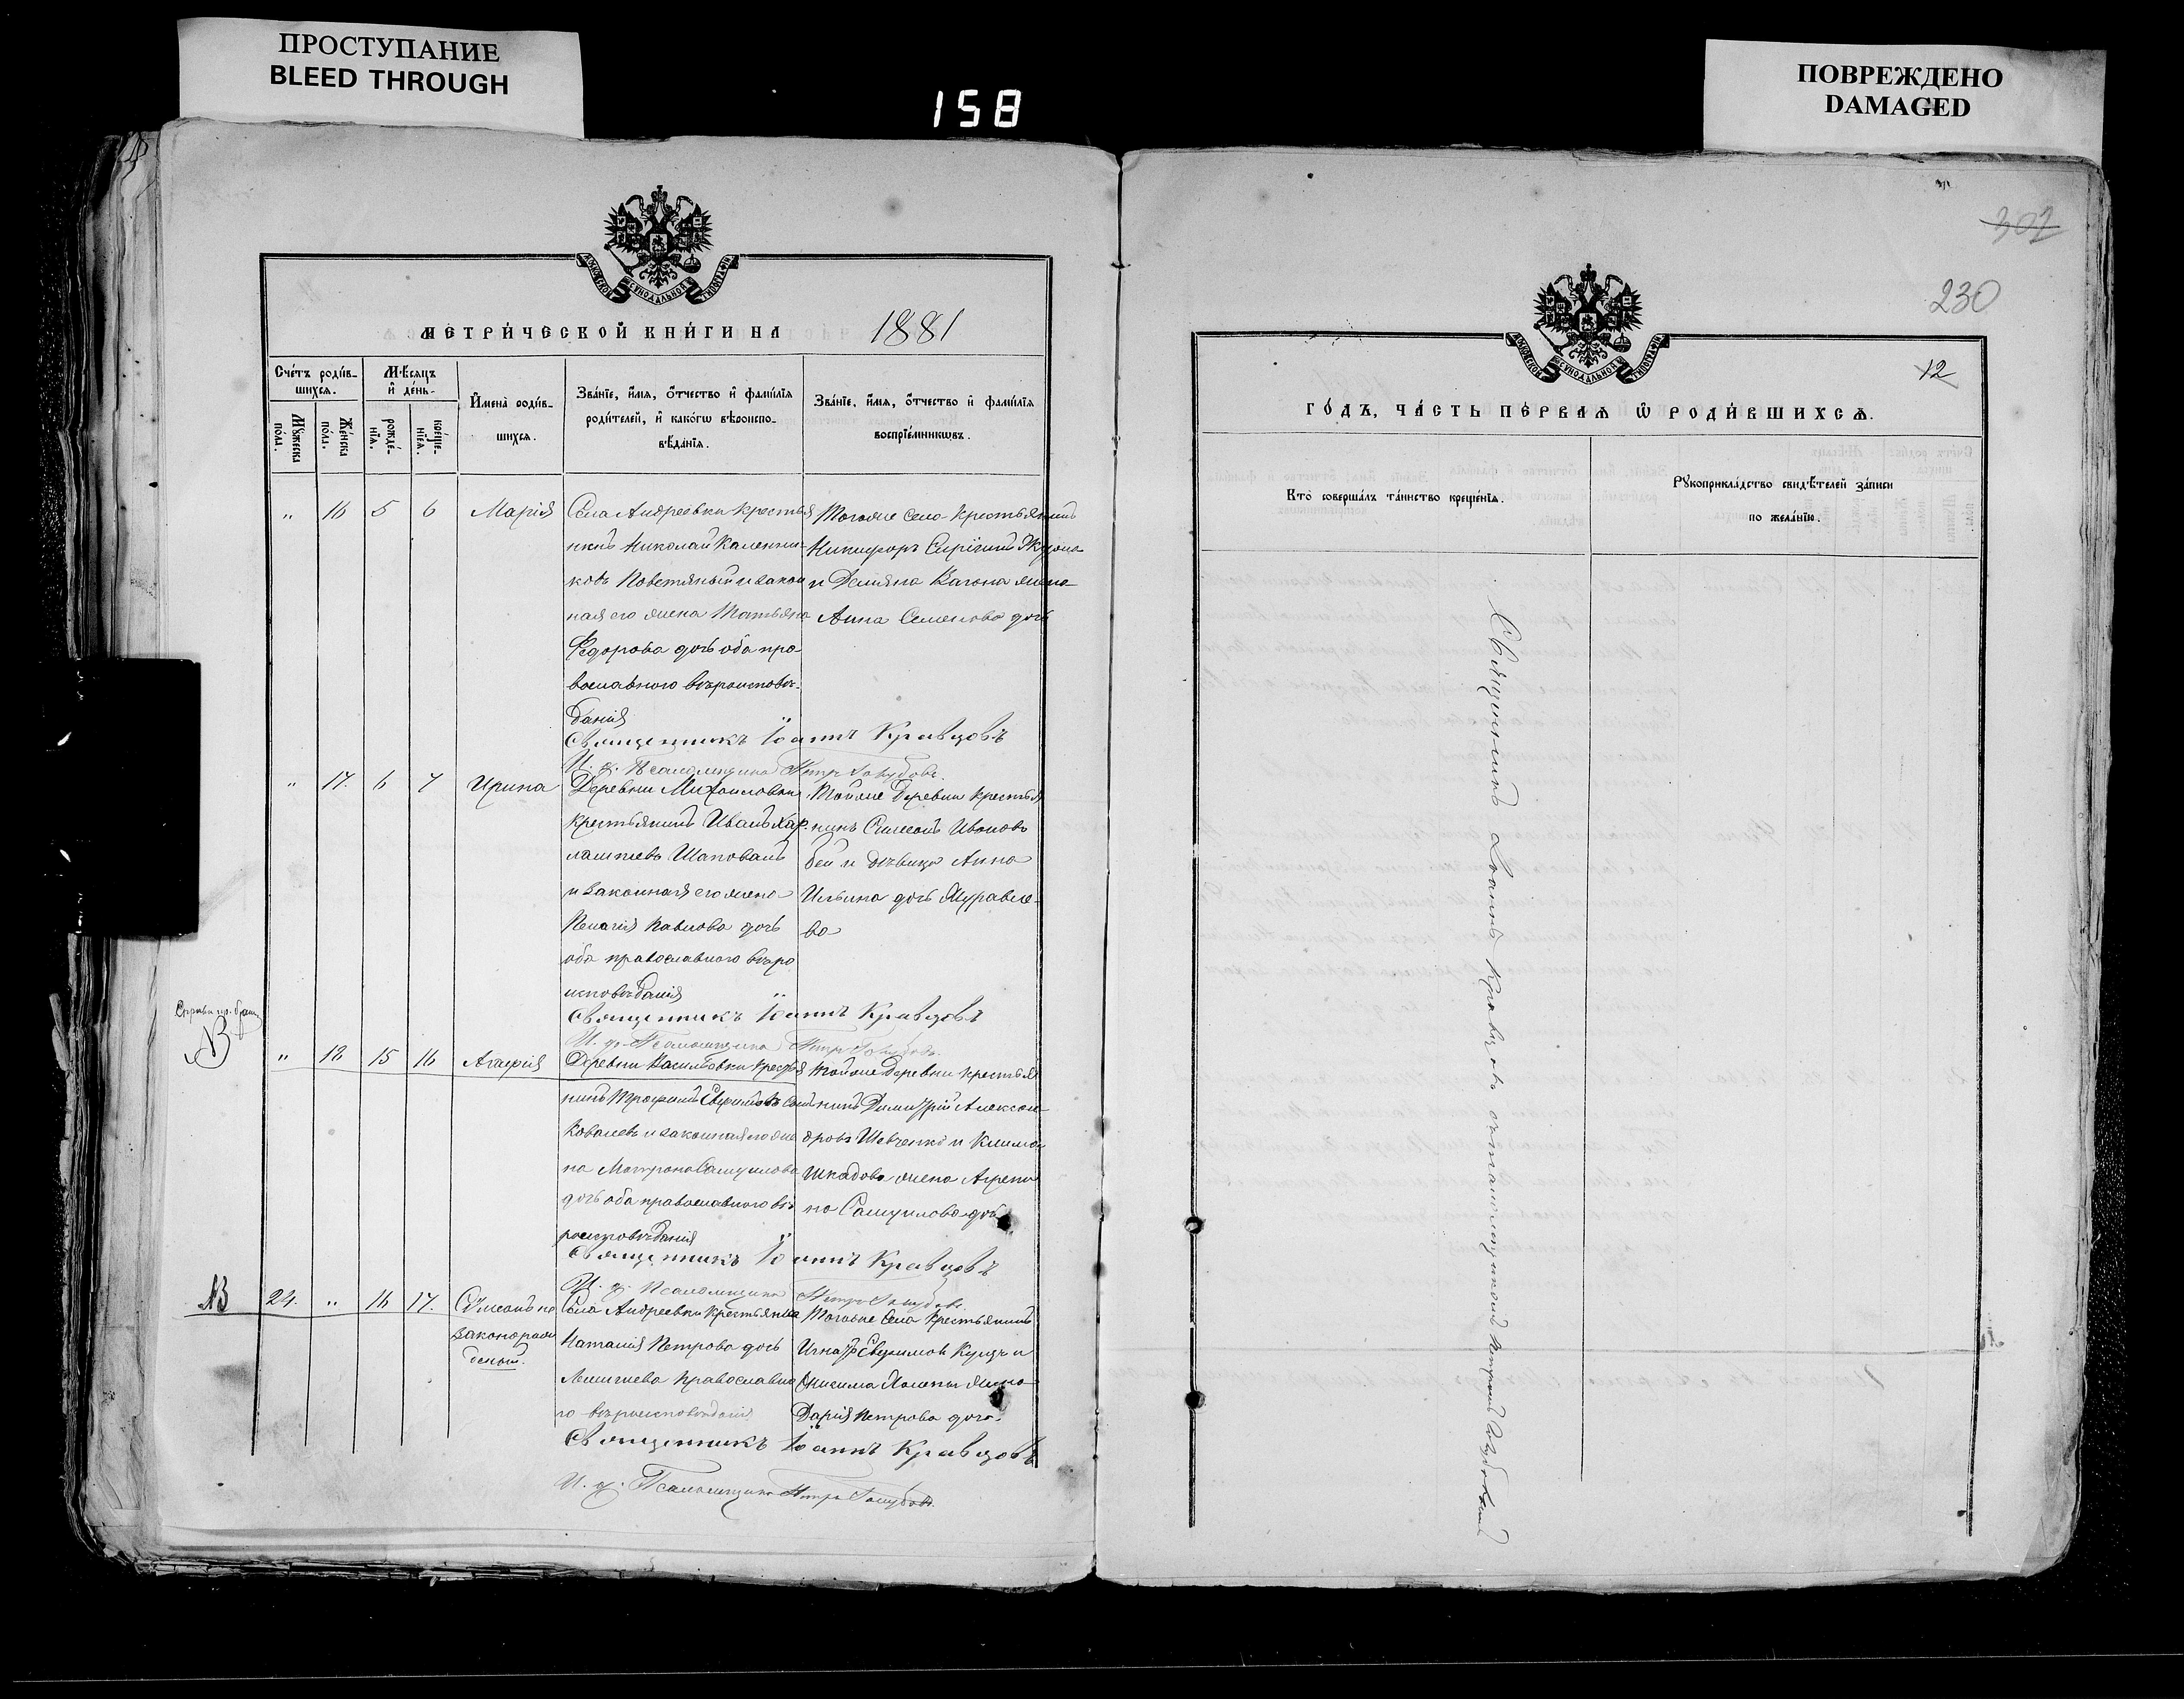 ПРОСТУПАНИЕ
BLEED THROUGH
158
ПОВРЕЖДЕНО
DAMAGED
МОСКОВСКОЙ СѴНОДАЛЬНОЙ ТИПОГРАФІИ
МЕТРИ́ЧЕСКОЙ КНИ́ГИ НА 1881
Сче́тъ роди́в-
шихся.
Мꙋ́жеска
по́ла.
Же́нска
по́ла.
Мѣ́сяцъ
и҆ де́нь.
рожде́-
нїѧ.
креще́-
нїѧ.
И҆мена̀ роди́в-
шихсѧ.
Зва́нїе, и҆́мѧ, ѻ҆́тчество и҆ фами́лїѧ
роди́телей, и҆ како́гѡ вѣроиспо-
вѣ́данїѧ.
Зва́нїе, и҆́мѧ, ѻ҆́тчество и҆ фами́лїѧ
воспрїе́мникѡвъ.
„ 16 5 6 Марія
Села Андреевки крестья
нинъ Николай Каленни-
ковъ и закон
ная его жена Татьяна
Федорова дочь оба пра-
вославного вѣроисповѣ-
данія
Тогоже села крестьянинъ
Никифоръ
и Демяна жена
Анна Семенова дочь
Священникъ Іоаннъ Кравцовъ
И. д. Псаломщика Петръ Голубовъ.
„ 17. 6 7 Ирина
Деревни Михайловки
крестьянинъ Иванъ Хар-
лампиевъ Шаповалъ
и законная его жена
Пелагія Павлова дочь
оба православного вѣро
исповѣданія
Тойже деревни крестья
нинъ Симеонъ Ивановъ
Бей и дѣвица Анна
Ильина дочь Журавле-
ва
Священникъ Іоаннъ Кравцовъ
И. д. Псаломщика Петръ Голубовъ.
NB
„ 18 15 16 Агафія
Деревни Васильевки крестья
нинъ Трофимъ Евфимовъ сынъ
Ковалевъ и законная его же
на Матрона Самуилова
дочь оба православного вѣ
роисповѣданія
Тойже деревни крестья
нинъ Димитрій Алексан-
дровъ Шевченко и Клима
Шкадова жена Агрепи
на Самуилова дочь
Священникъ Іоаннъ Кравцовъ
И. д. Псаломщика Петръ Голубовъ.
NB 24. „ 16 17. Сѵмеонъ не
законорож
денный.
Села Андреевки крестьянка
Наталія Петрова дочь
православна
го вѣроисповѣданія
Тогоже села крестьянинъ
Игнатъ Евфимовъ Куцъ и
Онисима жена
Дарія Петрова дочь.
Священникъ Іоаннъ Кравцовъ
И. д. Псаломщика Петръ Голубовъ.
302
230
12
МОСКОВСКОЙ СѴНОДАЛЬНОЙ ТИПОГРАФІИ
ГО́ДЪ, ЧА́СТЬ ПЕ́РВАѦ Ѽ РОДИ́ВШИХСѦ.
Кто̀ соверша́лъ та́инство креще́нїѧ.
Рꙋкоприкла́дство свидѣ́телей за́писи
по жела́нїю.
Священникъ Іоаннъ Кравцовъ съ псаломщикомъ Петромъ